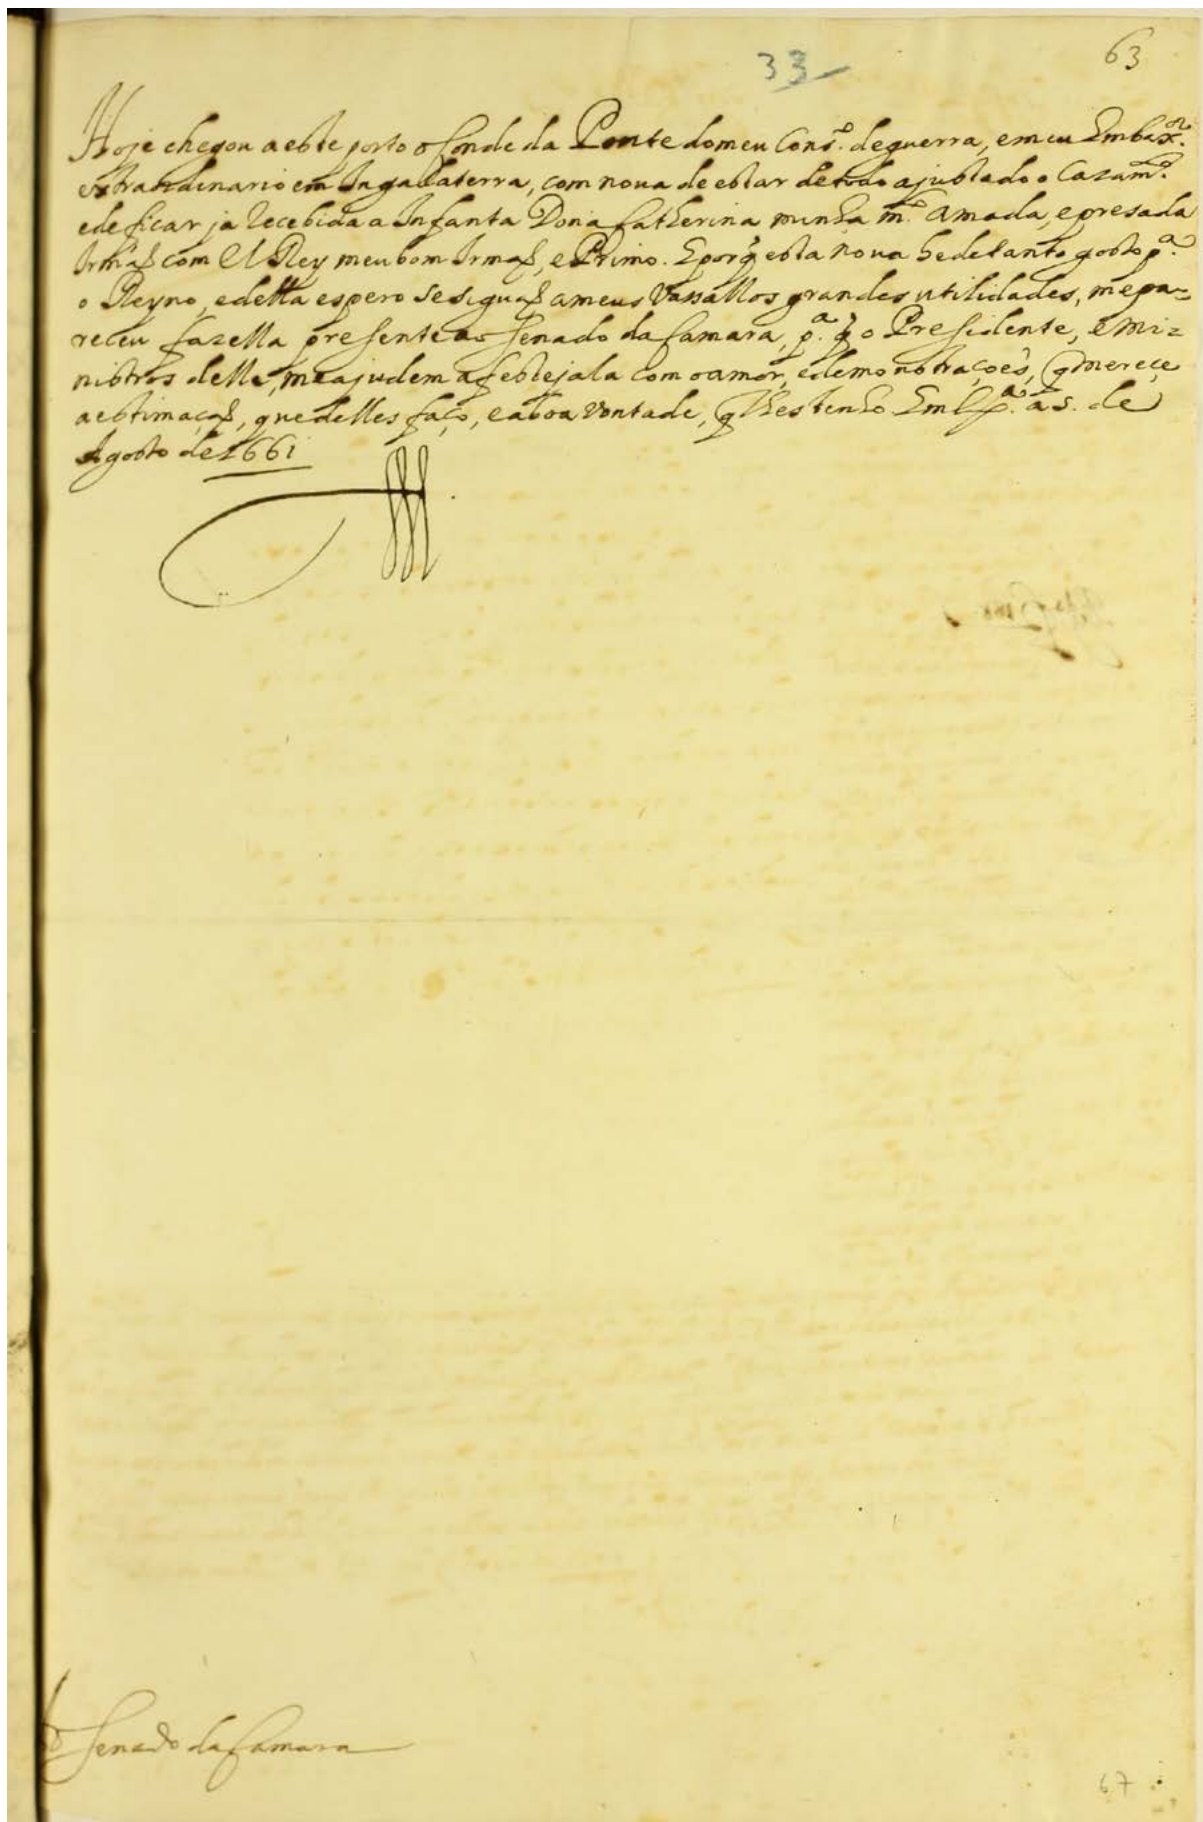 33
63
Hoje chegou a este porto o Conde da Ponte do meu Cons.º de guerra, e meu Embax.ºʳ
extraordinario em Ingallaterra, com noua de estar de todo ajustado o Cazam.ᵗᵒ
e de ficar ja recebida a Infanta Dona Catherina minha m.ᵗᵒ amada, e presada
Irmaã com El Rey meu bom Irmaõ, e Primo. E porq̃ esta noua he de tanto gosto p.ª
o Reyno, e della espero se sigaõ a meus Vassallos grandes utilidades, me pa-
receu fazella presente ao Senado da Camara, p.ª q̃ o Presidente, e Mi-
nistros delle, me ajudem a festejala com o amor, e demonstraçoẽs, q̃ merece
a estimaçaõ, que delles faço, e a boa vontade, q̃ lhes tenho Em Lx.ª a 5. de
Agosto de 1661
Senado da Camara
67